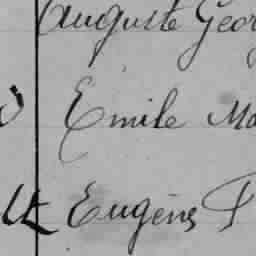 Auguste Geor
Emile Ma
Eugène P